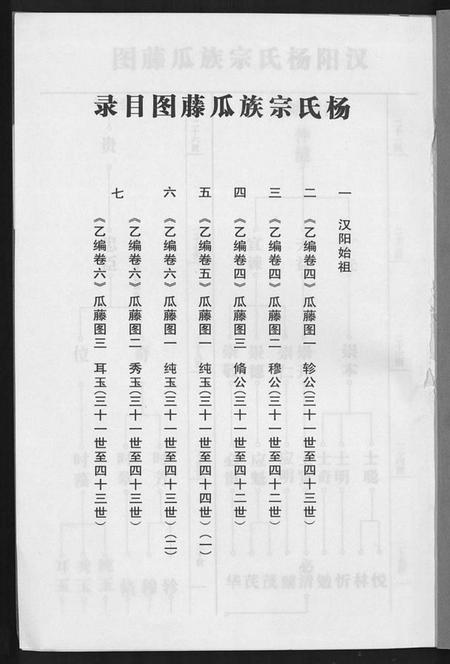 杨氏宗族瓜藤图目录
一 汉阳始祖
二 《乙编卷四》瓜藤图一 轸公(三十一世至四十三世)
三 《乙编卷四》瓜藤图二 穆公(三十一世至四十二世)
四 《乙编卷四》瓜藤图三 脩公(三十一世至四十二世)
五 《乙编卷五》瓜藤图一 纯玉(三十一世至四十四世)(一)
六 《乙编卷六》瓜藤图一 纯玉(三十一世至四十三世)(二)
《乙编卷六》瓜藤图二 秀玉(三十一世至四十三世)
七 《乙编卷六》瓜藤图三 耳玉(三十一世至四十三世)